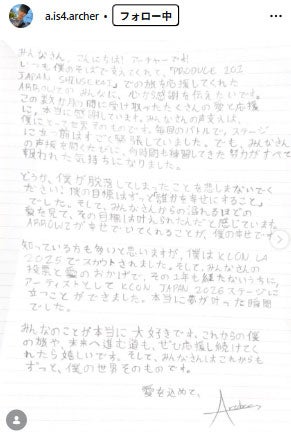 a.is4.archer • フォロー中
みんなさん、こんにちは！アーチャーです！
いつも僕のそばで支えてくれて、「PRODUCE 101
JAPAN SHINSEKAI」での旅を応援してくれた
ARROWZのみんなに、心から感謝を伝えたいです。
この数か月の間に受け取ったたくさんの愛と応援
に、本当に感謝しています。みんなさんの声援は、
僕にとって世界そのものです。毎回のバトルで、ステージ
に立つ前はすごく緊張していました。でも、みんなさん
の声援を聞くたびに、何時間も練習してきた努力がすべて
報われた気持ちになりました。
どうか、僕が脱落してしまったことを悲しまないでく
ださい！僕の目標はずっと「誰かを幸せにすること」
でした。そして、みんなさんからの溢れるほどの
愛を見て、その目標は叶えられたんだと感じています。
ARROWZが幸せでいてくれることが、僕の幸せです
知っている方も多いと思いますが、僕はKCON LA
2025でスカウトされました。そして、みんなさんの
投票と愛のおかげで、その1年も経たないうちに、
アーティストとしてKCON JAPAN 2026ステージに
立つことができました。本当に夢が叶った瞬間
でした。
みんなのことが本当に大好きです。これからの僕
の旅や、未来へ進む道も、ぜひ応援し続けてく
れたら嬉しいです。そして、みんなさんはこれからも
ずっと、僕の世界そのものです。
愛を込めて、
Archer